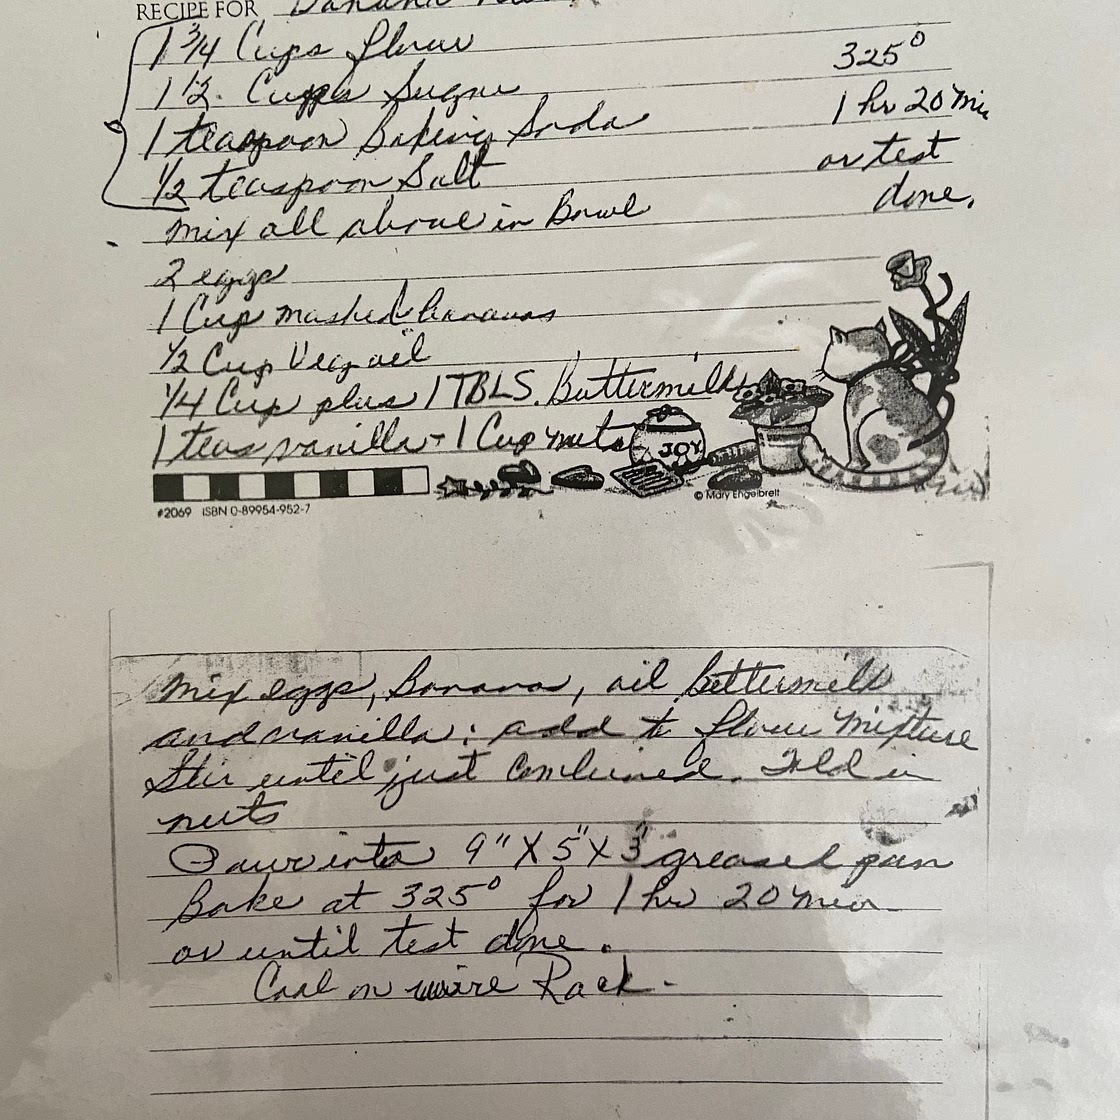 RECIPE FOR Banana
1 3/4 Cups flour
325°
1 1/2. Cupps Sugar
1 hr 20 Min
1 teaspoon Baking Soda
or test
1/2 teaspoon Salt
done.
Mix all above in Bowl
2 eggs
1 Cup mashed bananas
1/2 Cup Veg oil
1/4 Cup plus 1 TBLS. Buttermilk
1 teas vanilla - 1 Cup nuts
JOY
© Mary Engelbreit
#2069 ISBN 0-89954-952-7
Mix eggs, Banana, oil buttermilk
and vanilla: add to flour mixture
Stir until just combined. Fold in
nuts
Pour into 9" X 5" X 3" greased pan
Bake at 325° for 1 hr 20 min
or until test done.
Cool on wire Rack.